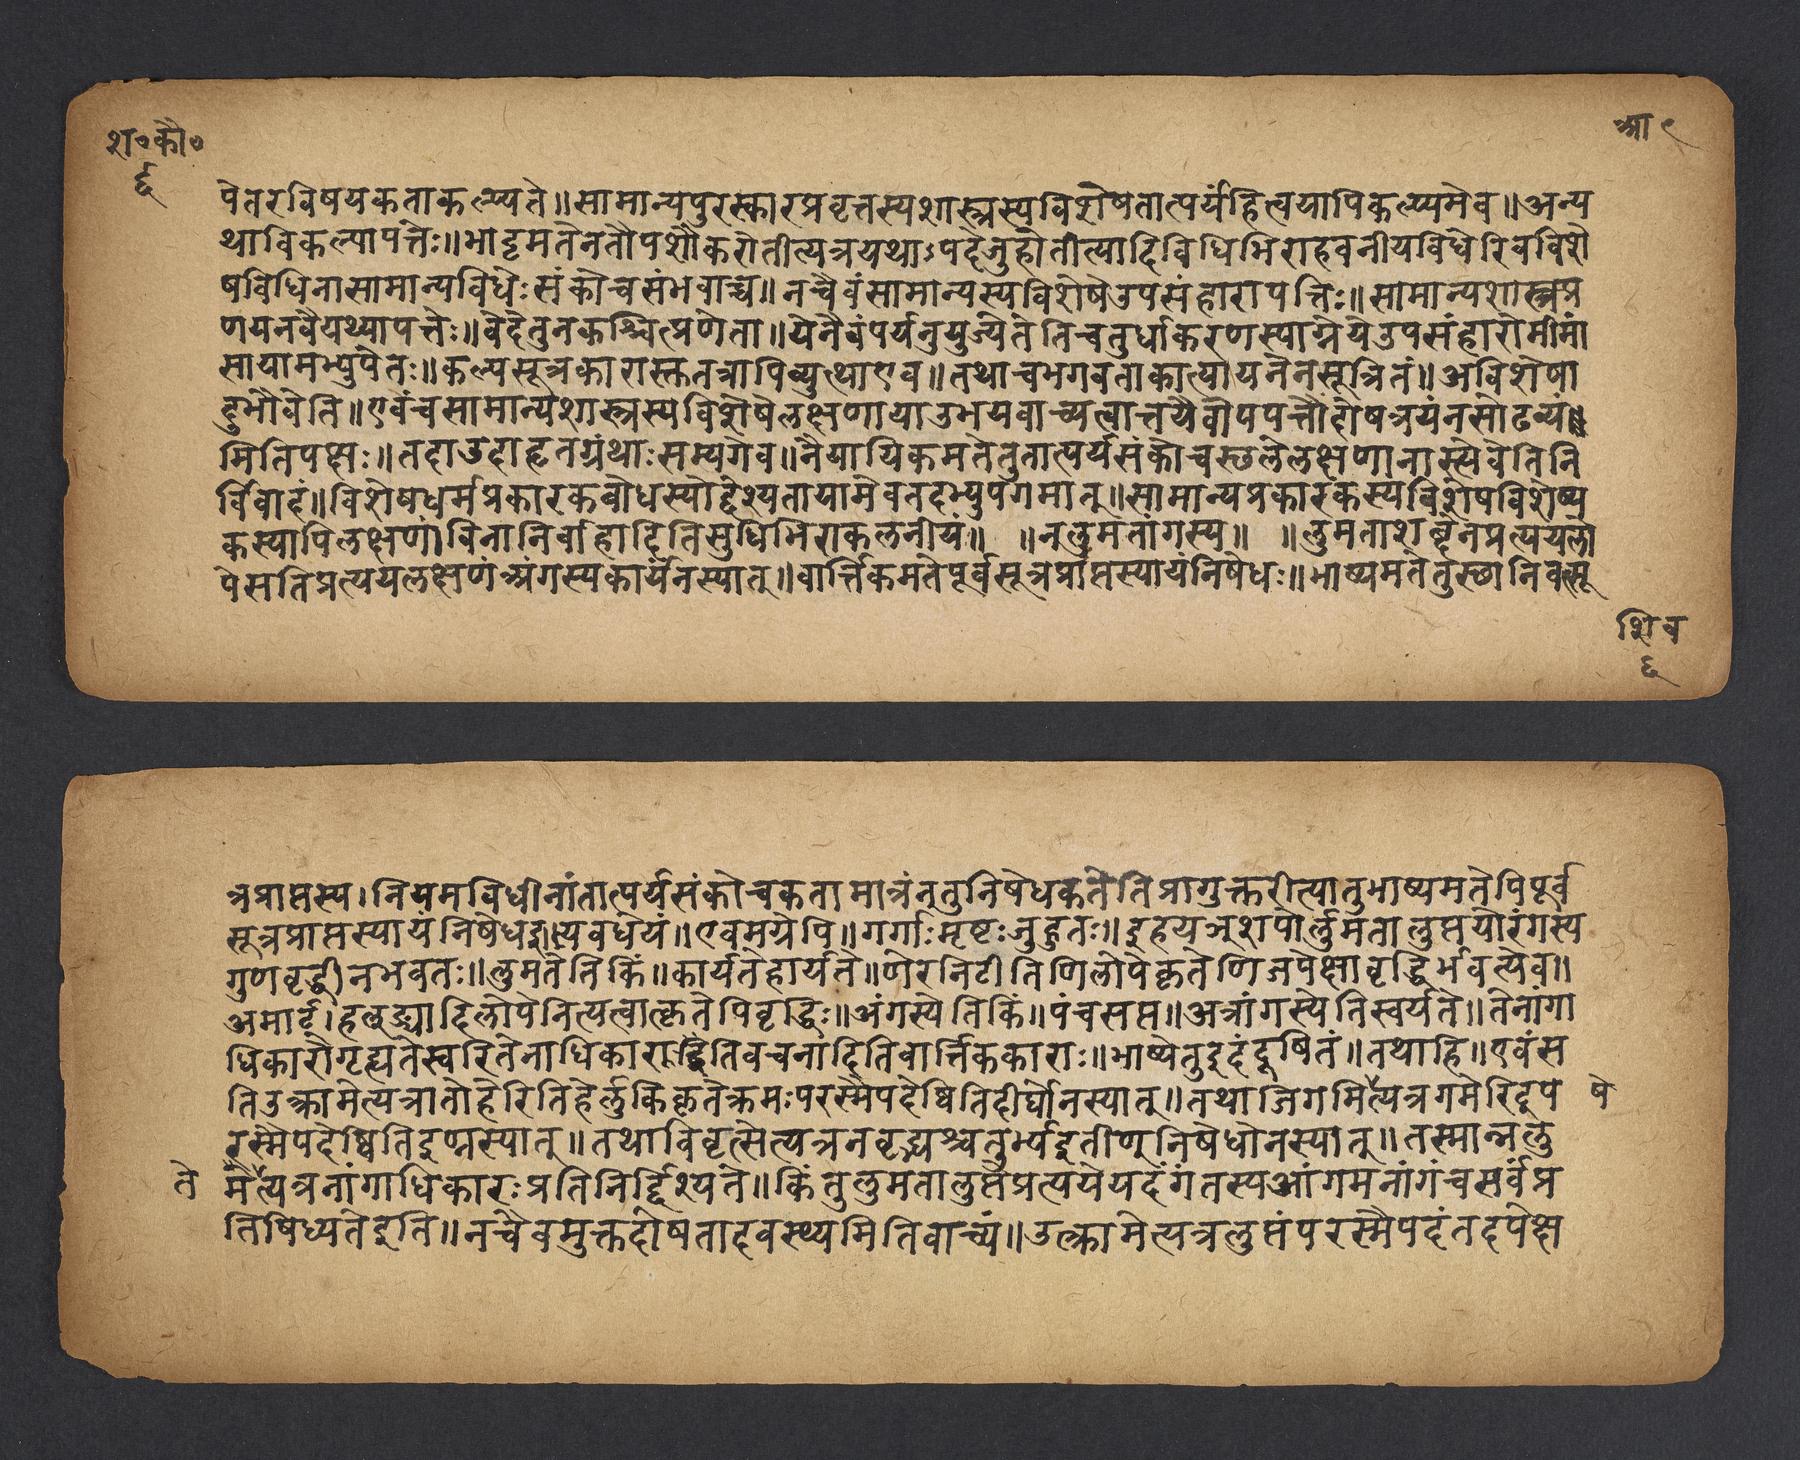 श॰कौ॰
आ ९
६
पेतरविषयकताकल्प्यते॥सामान्यपुरस्कारप्रवृत्तस्यशास्त्रस्यविशेषतात्पर्यंहित्वयापिकल्प्यमेव॥अन्य
थाविकल्पापत्तेः॥भाट्टमतेनतौपशौकरोतीत्यत्रयथाऽपदेजुहोतीत्यादिविधिभिराहवनीयविधेरिवविशे
षविधिनासामान्यविधेःसंकोचसंभवाच्च॥नचैवंसामान्यस्यविशेषेउपसंहारापत्तिः॥सामान्यशास्त्रप्र
णयनवैयर्थ्यापत्तेः॥वेदेतुनकश्चित्प्रणेता॥येनैवंपर्यनुयुज्येतेतिचतुर्धाकरणस्याग्नेयेउपसंहारोमीमां
सायामभ्युपेतः॥कल्पसूत्रकारास्तुतत्रापिव्युत्थाएव॥तथाचभगवताकात्यायनेनसूत्रितं॥अविशेषा
दुभौवेति॥एवंचसामान्यशास्त्रस्यविशेषेलक्षणायाउभयवाच्यत्वात्तयैवोपपत्तौदोषत्रयंनसोढव्यं॥
मितिपक्षः॥तदाउदाहृतग्रंथाःसम्यगेव॥नैयायिकमतेतुतात्पर्यसंकोचस्थलेलक्षणानास्त्येवेतिनि
र्विवादं॥विशेषधर्मप्रकारकबोधस्योद्देश्यतायामेवतदभ्युपगमात्॥सामान्यप्रकारकस्यविशेषविशेष्य
कस्यापिलक्षणांविनानिर्वाहादितिसुधिभिराकलनीयं॥ ॥नलुमतांगस्य॥ ॥लुमताशब्देनप्रत्ययलो
पेसतिप्रत्ययलक्षणंअंगस्यकार्यंनस्यात्॥वार्त्तिकमतेपूर्वसूत्रप्राप्तस्यायंनिषेधः॥भाष्यमतेतुस्थानिवत्सू
शिव
६
त्रप्राप्तस्य।नियमविधीनांतात्पर्यसंकोचकतामात्रंनतुनिषेधकतेतिप्रागुक्तरीत्यातुभाष्यमतेपिपूर्व
सूत्रप्राप्तस्यायंनिषेधइत्यवधेयं॥एवमग्रेपि॥गर्गाःमृष्टःजुहुतः॥इहयञ्शपोर्लुमतालुप्तयोरंगस्य
गुणवृद्धीनभवतः॥लुमतेतिकिं॥कार्यतेहार्यते॥णेरनिटीतिणिलोपेकृतेणिजपेक्षावृद्धिर्भवत्येव॥
अमार्ट्।हल्ङ्यादिलोपेनित्यत्वात्कृतेपिवृद्धिः॥अंगस्येतिकिं॥पंचसप्त॥अत्रांगस्येतिस्वर्यते॥तेनांगा
धिकारोगृह्यतेस्वरितेनाधिकारइतिवचनादितिवार्त्तिककाराः॥भाष्येतुइदंदूषितं॥तथाहि॥एवंस
तिउत्क्रामेत्यत्रातोहेरितिहेर्लुकिकृतेक्रमःपरस्मैपदेष्वितिदीर्घोनस्यात्॥तथाजिगमित्यत्रगमेरिट्प
षे
रस्मैपदेष्वितिइण्नस्यात्॥तथाविवृत्सेत्यत्रनवृद्भ्यश्चतुर्भ्यइतीण्निषेधोनस्यात्॥तस्मान्नलु
ते
मेत्यत्रनांगाधिकारःप्रतिनिर्द्दिश्यते॥किंतुलुमतालुप्तेप्रत्ययेयदंगंतस्यआंगमनांगंचसर्वंप्र
तिषिध्यतेइति॥नचैवमुक्तदोषतादवस्थ्यमितिवाच्यं॥उत्क्रामेत्यत्रलुप्तंपरस्मैपदंतदपेक्ष